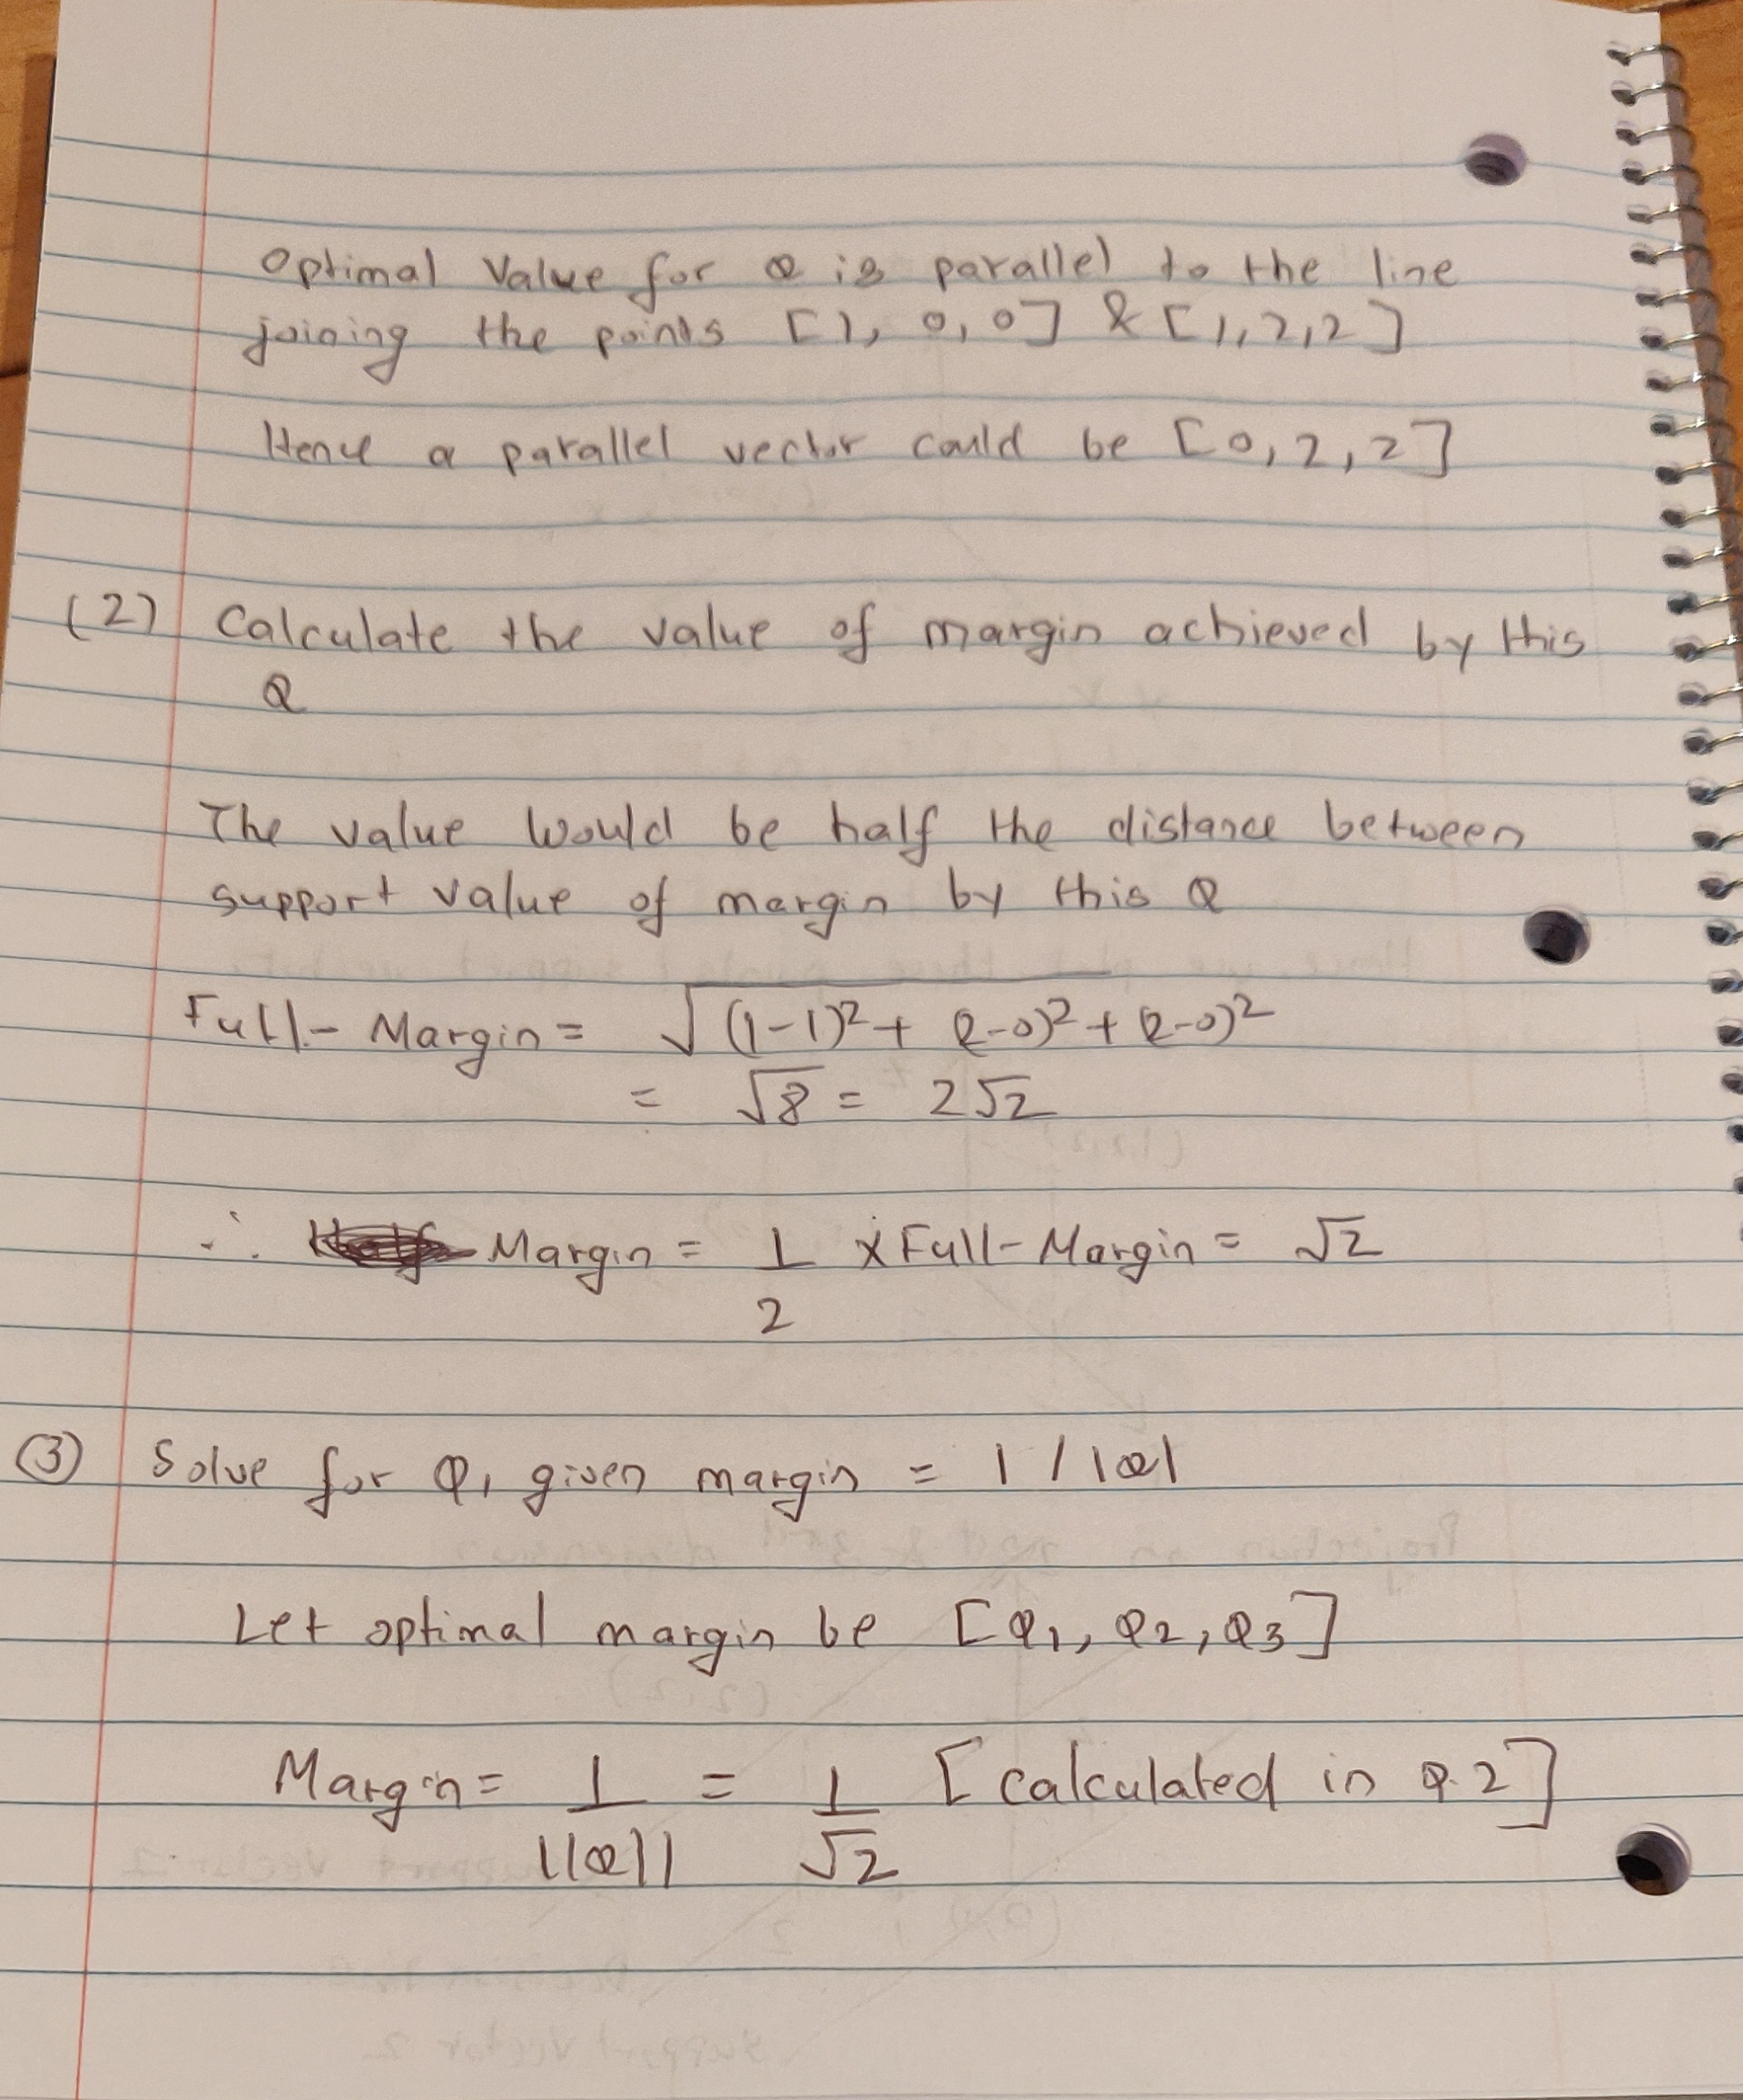 Optimal Value for Q is parallel to the line
joining the points [1, 0, 0] & [1, 2, 2]
Hence a parallel vector could be [0, 2, 2]
(2) Calculate the value of margin achieved by this
Q
The value would be half the distance between
support value of margin by this Q
Full-Margin = √(1-1)² + (2-0)² + (2-0)²
= √8 = 2√2
∴ Margin = 1/2 × Full-Margin = √2
(3) Solve for Q, given margin = 1 / |Q|
Let optimal margin be [Q1, Q2, Q3]
Margin = 1/||Q|| = 1/√2 [calculated in Q.2]